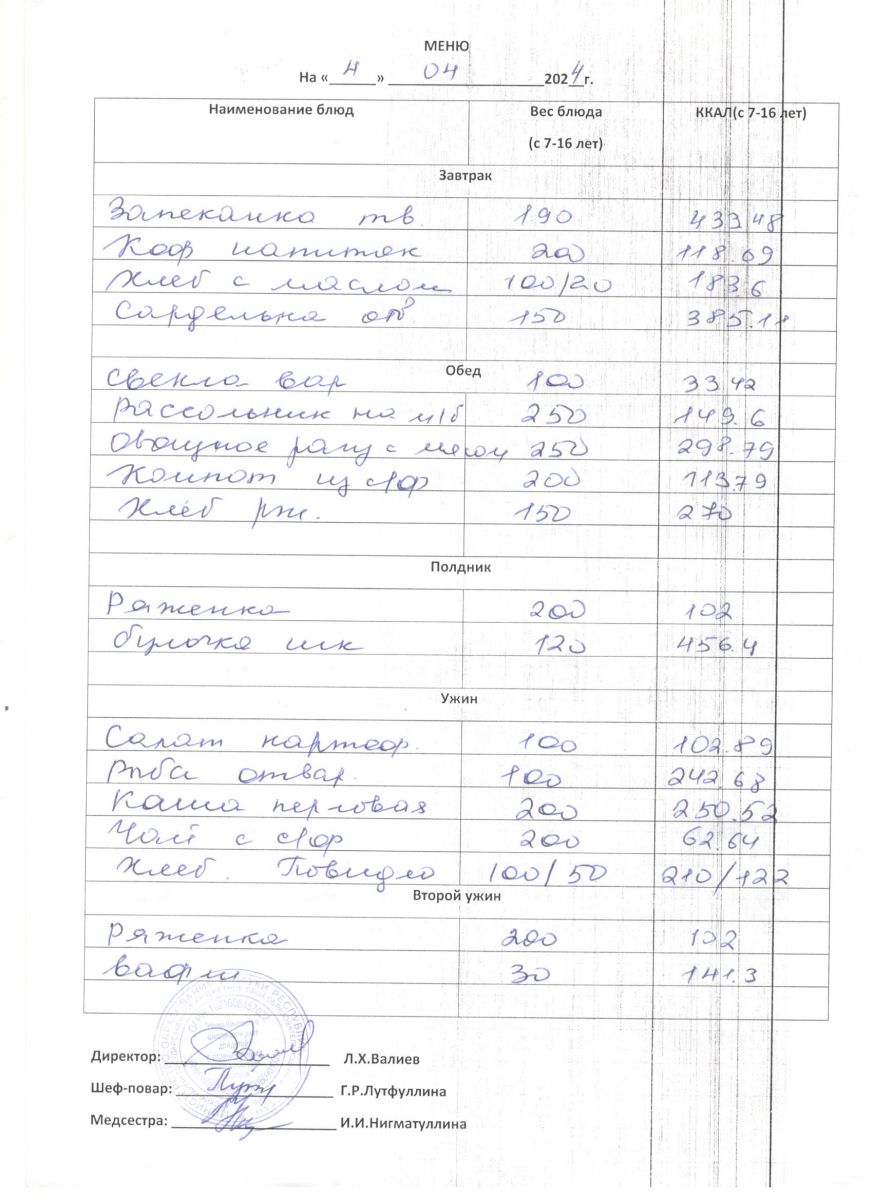 МЕНЮ
На « 4 » 04 2024 г.
Наименование блюд Вес блюда (с 7-16 лет) ККАЛ(с 7-16 лет)
Завтрак
Запеканка тв. 190 433.48
Коф напиток 200 118.69
Хлеб с маслом 100/20 183.6
Сарделька отв. 150 385.11
Обед
Свекла вар 100 33.42
Рассольник на м/б 250 149.6
Овощное рагу с мясом 250 298.79
Компот из с/ф 200 113.79
Хлеб рж. 150 270
Полдник
Ряженка 200 102
булочка шк 120 456.4
Ужин
Салат картоф. 100 102.89
Рыба отвар. 100 242.68
Каша перловая 200 250.52
Чай с 200 62.64
Хлеб. Повидло 100/50 210/122
Второй ужин
Ряженка 200 102
вафли 30 141.3
Директор: Л.Х.Валиев
Шеф-повар: Г.Р.Лутфуллина
Медсестра: И.И.Нигматуллина